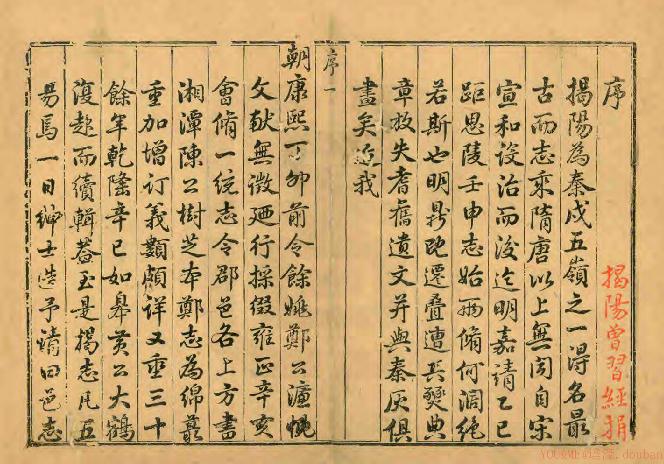 揭陽曾習經捐
序
揭陽為秦戍五嶺之一得名最
古而志乘隋唐以上無聞自宋
宣和設治而後迄明嘉靖乙巳
距思陵壬申志始兩脩何濶絶
若斯也明鼎既遷疊遭兵燹典
章放失耆舊遺文并與秦灰俱
盡矣迨我
序一
朝康熙丁卯前令餘姚鄭公濂慨
文獻無徵廼行採綴雍正辛亥
會脩一統志令郡邑各上方書
湘潭陳公樹芝本鄭志為綿蕞
重加增訂義類頗詳又重三十
餘年乾隆辛巳如皋黃公大鶴
復起而續輯蓋至是揭志凡五
易焉一日紳士造予請曰邑志